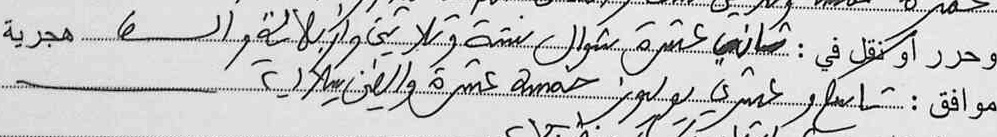 وحرر أو نقل في : ثاني عشرة شوال ستة وثلاثين وأربعمائة وألف هجرية
موافق : تاسع وعشري يوليوز خمسة عشرة وألفين ميلادية